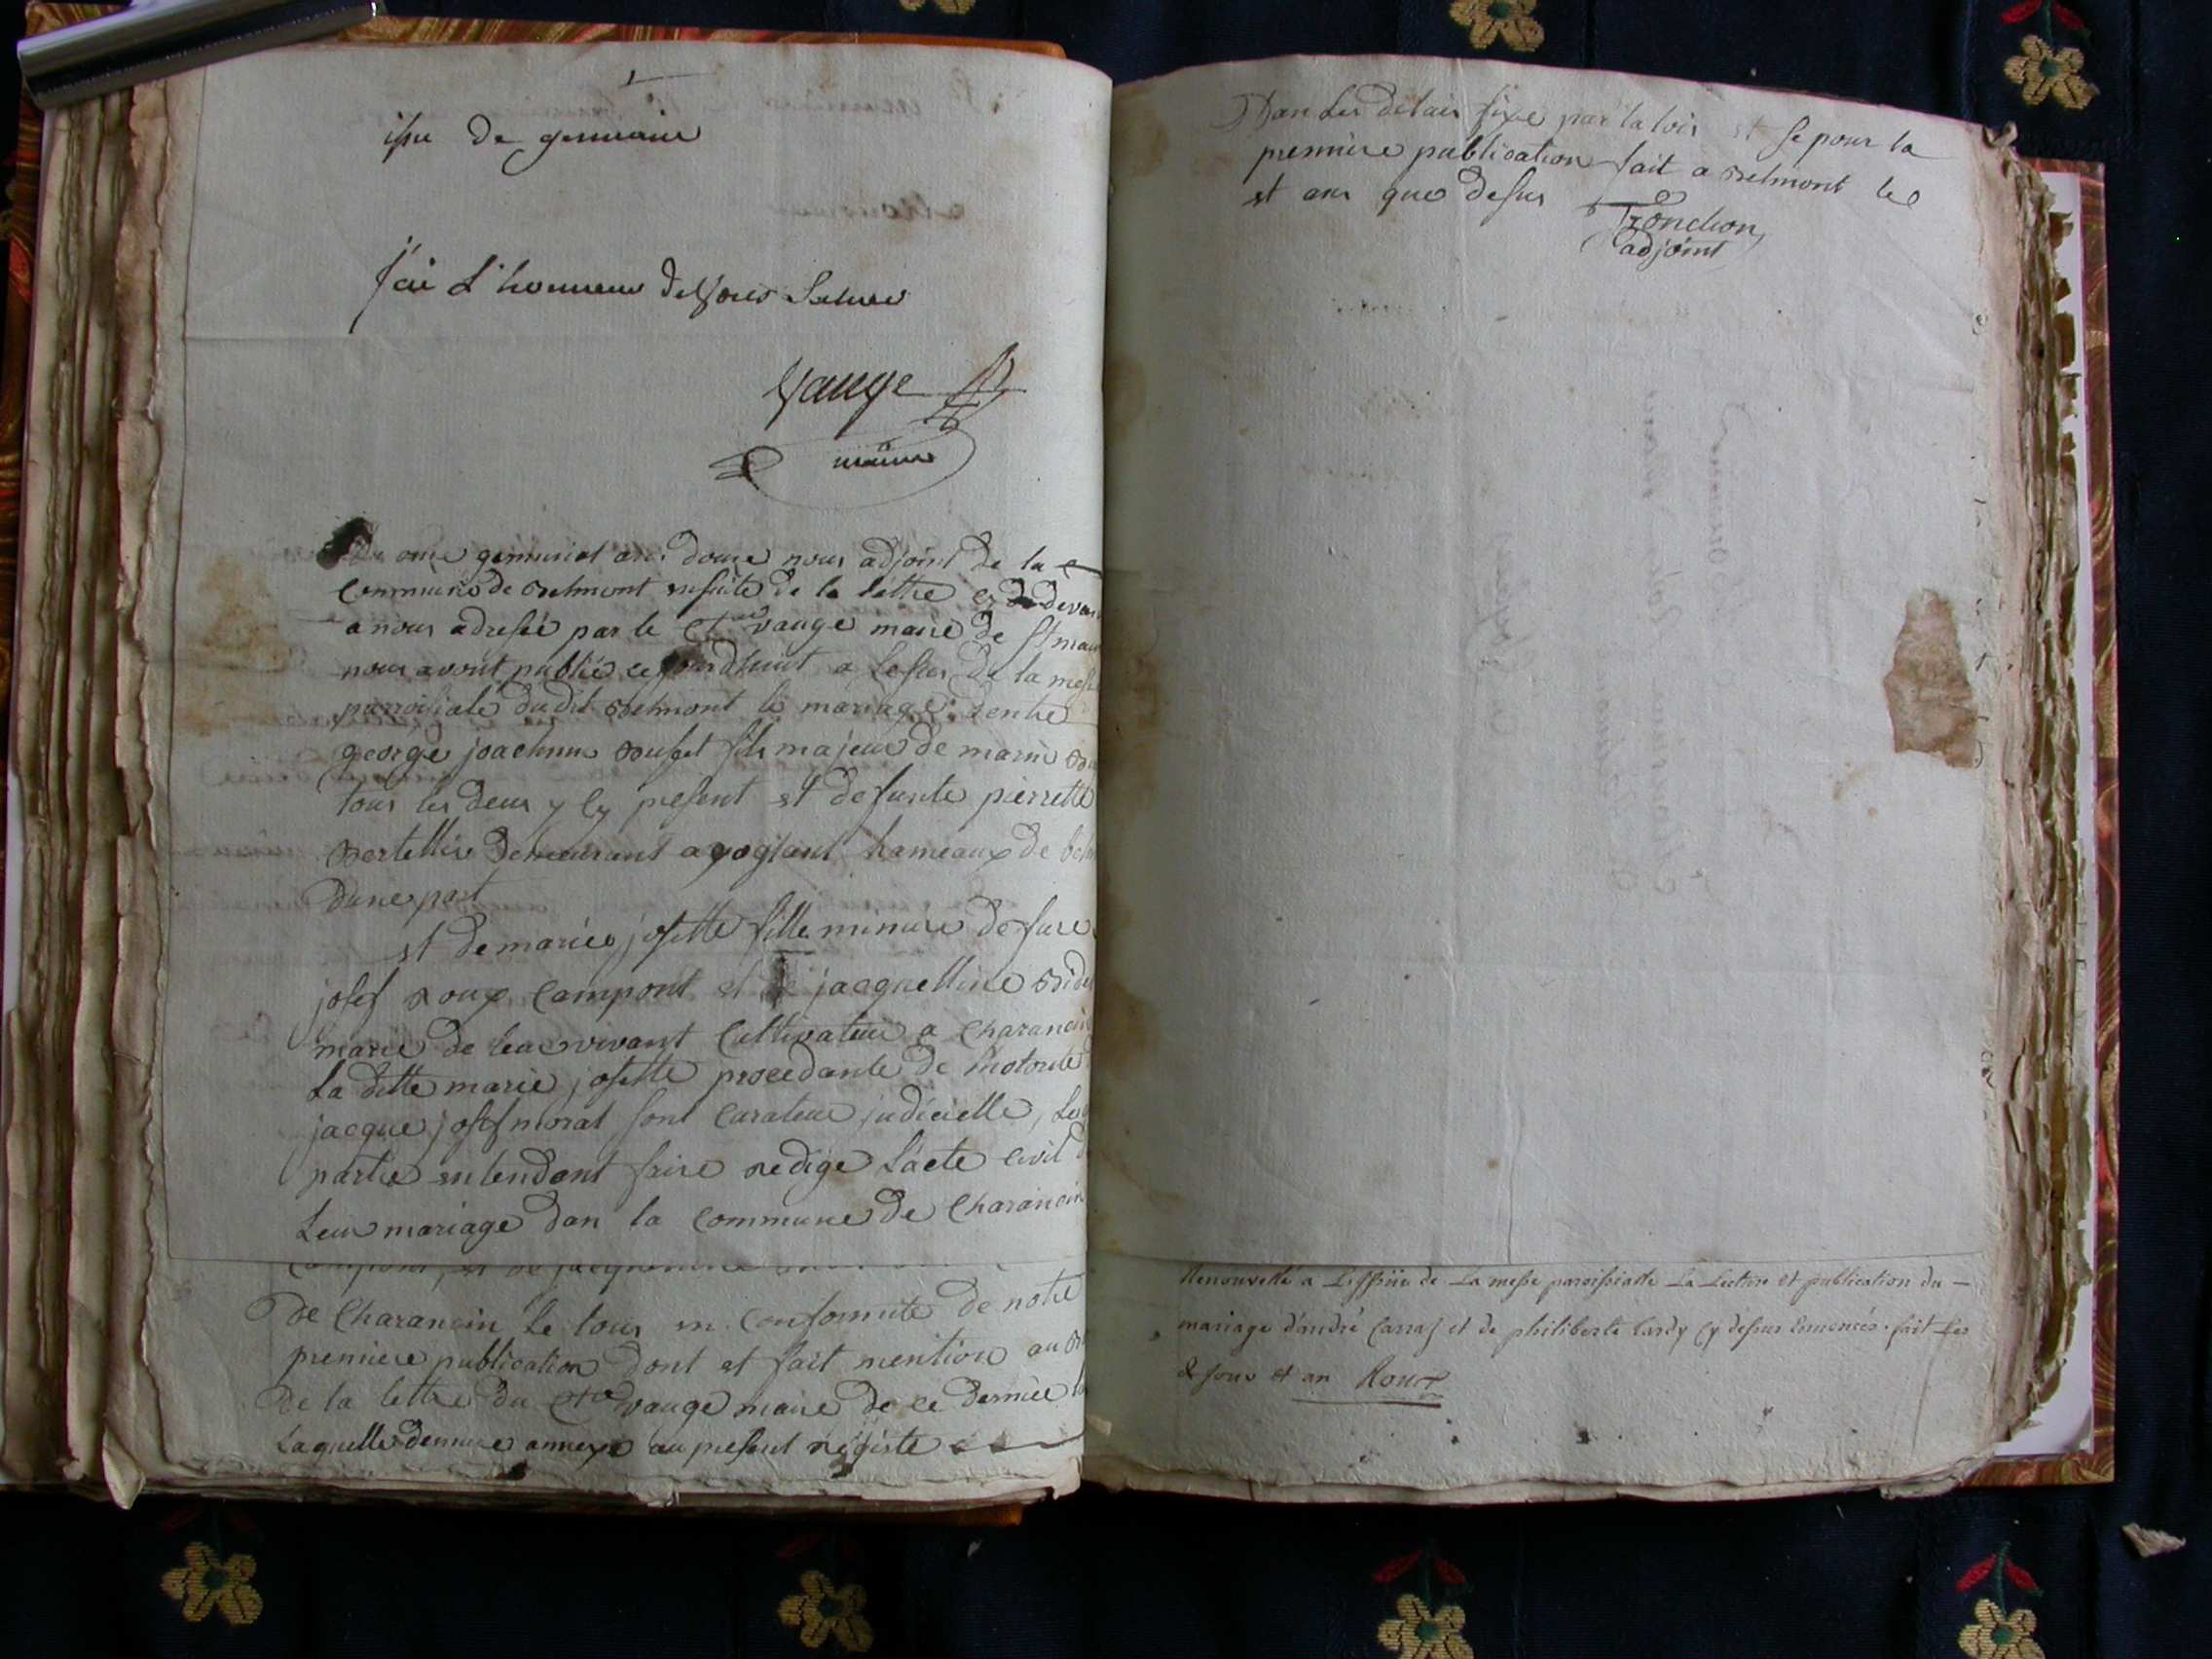 issu de germain
j'ai l'honneur de vous saluer
vauge
maire
onze germinal an douze nous adjoint de la
commune de Belmont ensuite de la lettre cy devan
a nous adresée par le Cten vauge maire de St mau
nous avont publié ce jourdhuit a lessus de la messe
parroisiale dudit Belmont le mariage dentre
george joachim Buffet fils majeur de marin
tous les deux y cy present et defunte pierrette
Bertellier demeurant a hameaux de bel
dune part
et de marie josette fille mineure de fure
josef Roux Campont et jacquelline Bide
marie de leur vivant Cultivateur a Charancin
La ditte marie josette procedante de lhotorité
jacque josef morat sont Curateur judicielle, Les
partie entendant faire redige Lacte civil d
Leur mariage dan la commune de Charancin
De Charancin Le tour en Conformité de notre
premiere publication dont et fait mention au
De la lettre du Cten vauge maire de ce dernier
Laquelle demeure annexe au present registre
Dan Les delais fixe par la lois et se pour la
premiere publication fait a Belmont les
et ans que desus
Tronchon
adjoint
Renouvellé a L'issüe de La messe paroissialle La Lecture et publication du
mariage d'andré Carraz et de philiberte Cardy cy dessus énoncés. fait les
& jour et an Roux